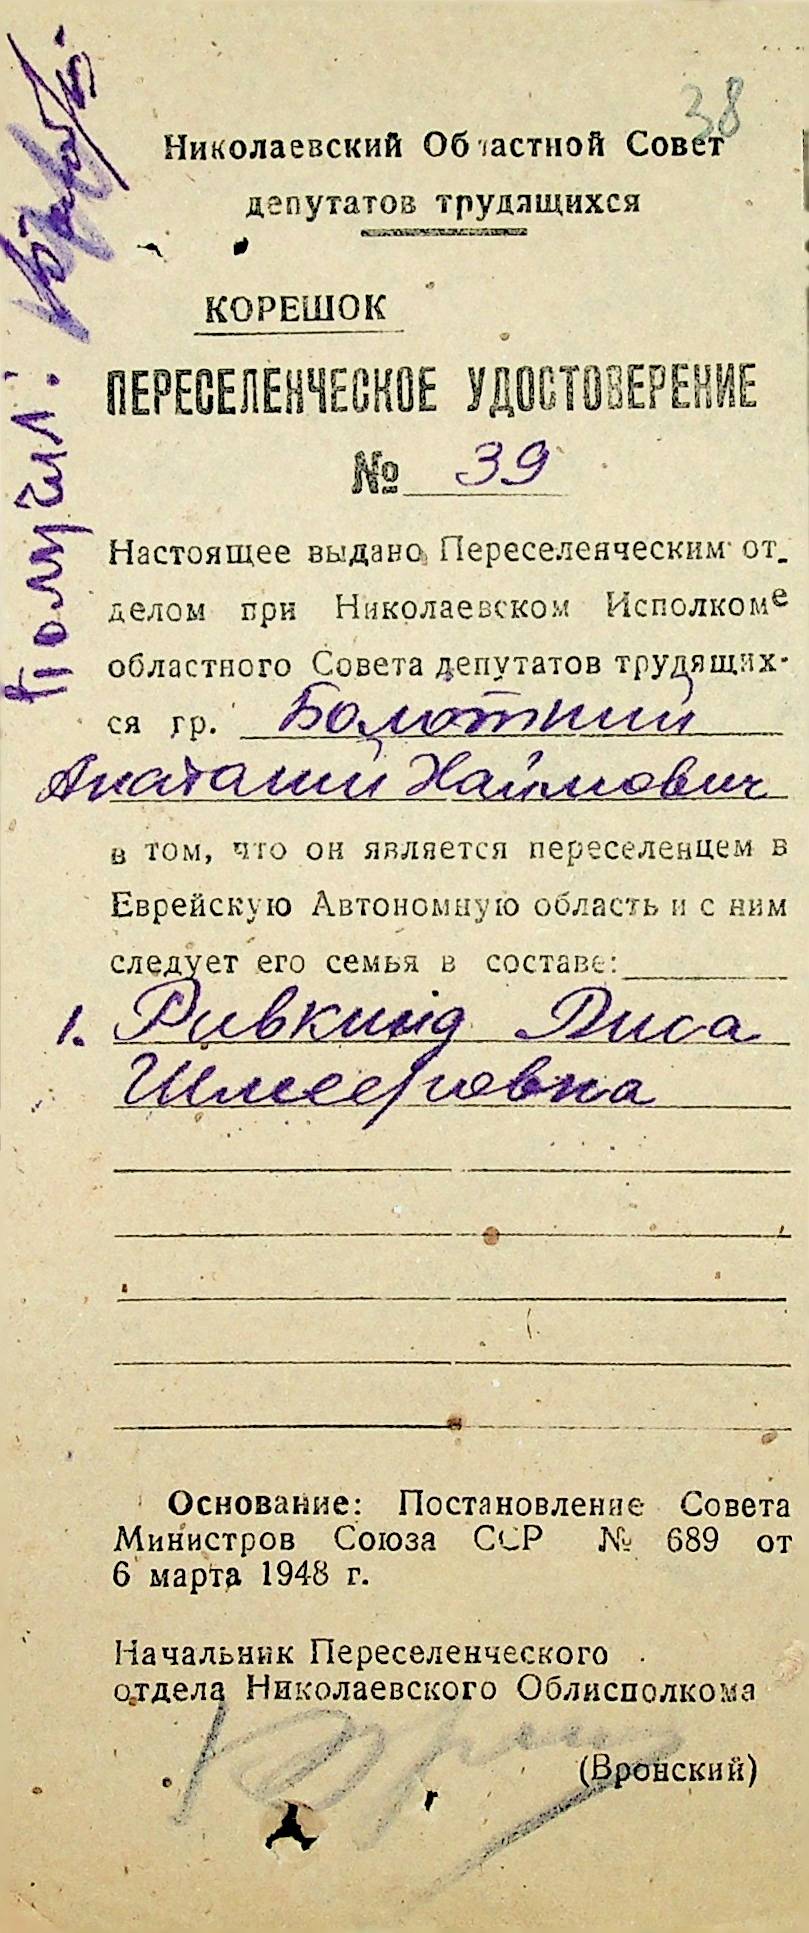 38
Николаевский Областной Совет
депутатов трудящихся
КОРЕШОК
ПЕРЕСЕЛЕНЧЕСКОЕ УДОСТОВЕРЕНИЕ
№ 39
Настоящее выдано Переселенческим от-
делом при Николаевском Исполкоме
областного Совета депутатов трудящих-
ся гр. Болотний
Анаталий Хаймович
в том, что он является переселенцем в
Еврейскую Автономную область и с ним
следует его семья в составе:
1. Ривкинд Писа
Шмееровна
Основание: Постановление Совета
Министров Союза ССР № 689 от
6 марта 1948 г.
Начальник Переселенческого
отдела Николаевского Облисполкома
(Вронский)
Получил: